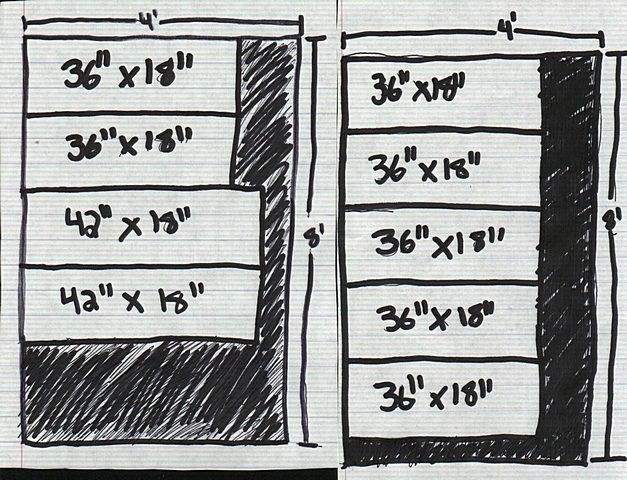 4'
36" x 18"
36" x 18"
42" x 18"
42" x 18"
8'
4'
36" x 18"
36" x 18"
36" x 18"
36" x 18"
36" x 18"
8'